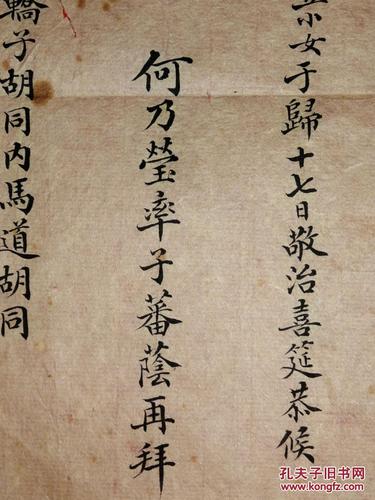 小女于歸十七日敬治喜筵恭候
何乃瑩率子蕃蔭再拜
轎子胡同內馬道胡同
孔夫子旧书网